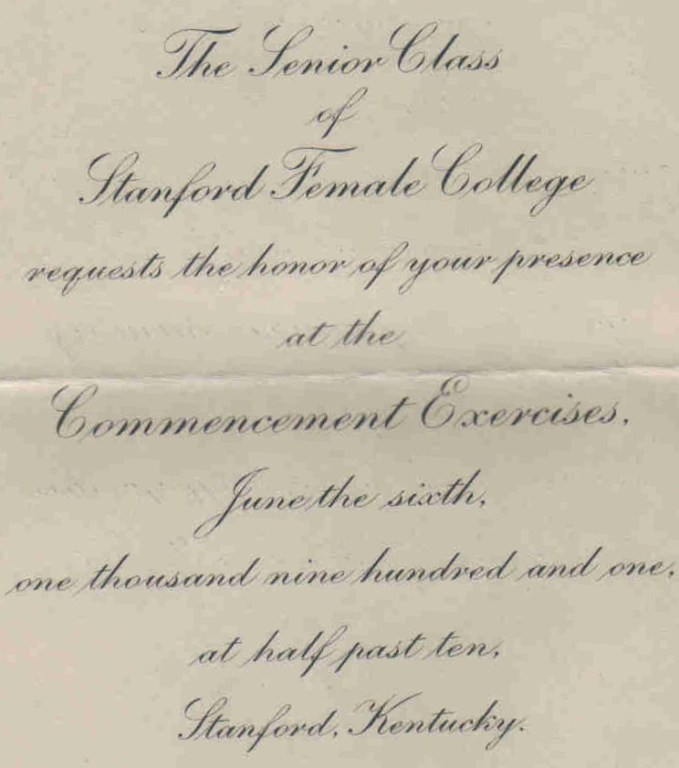 The Senior Class
of
Stanford Female College
requests the honor of your presence
at the
Commencement Exercises,
June the sixth,
one thousand nine hundred and one,
at half past ten,
Stanford, Kentucky.